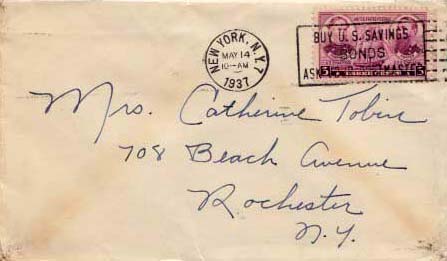 NEW YORK, N.Y. 7
MAY 14
10-AM
1937
BUY U.S. SAVINGS
BONDS
ASK
MASTER
5 5
Mrs. Catherine Tobin
708 Beach Avenue
Rochester
N.Y.